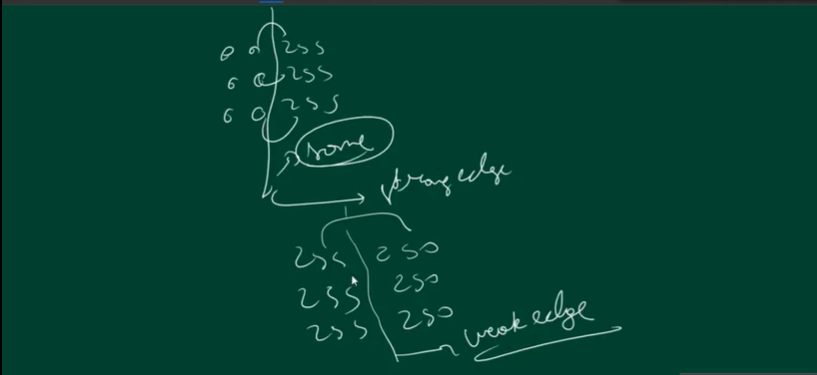 0 0 255
0 0 255
0 0 255
some
strong edge
255 250
255 250
255 250
weak edge